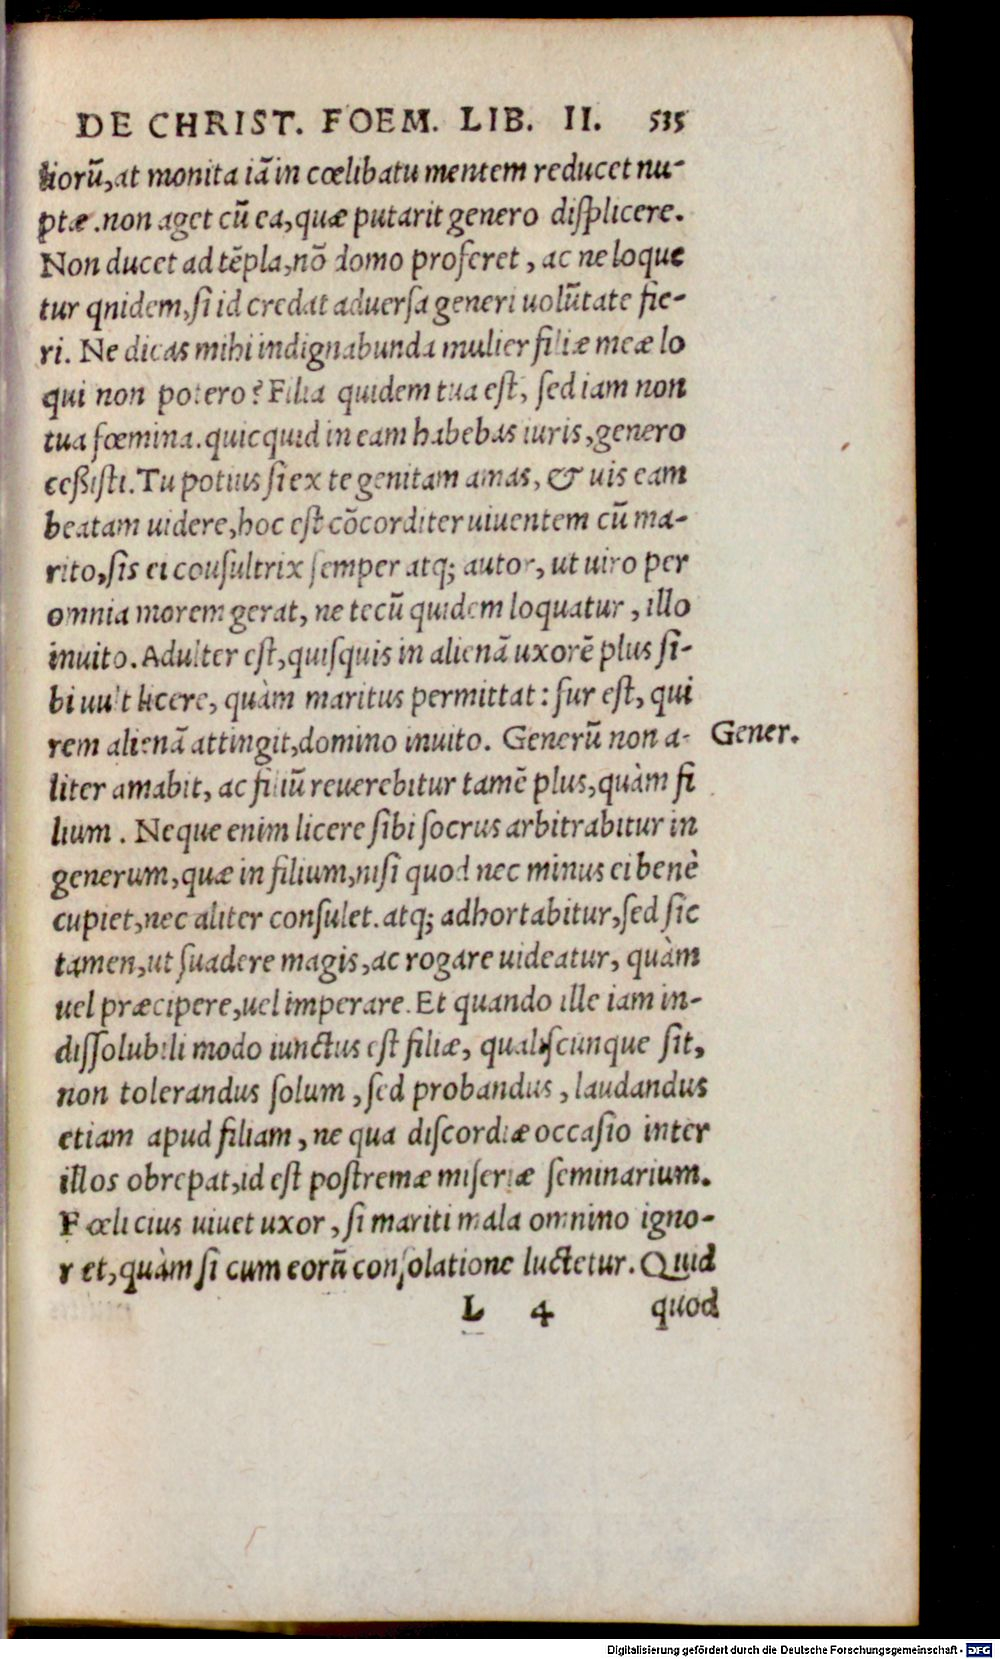 DE CHRIST. FOEM. LIB. II. 535
liorū, at monita iā in cœlibatu mentem reducet nu-
ptæ. non aget cū ea, quæ putarit genero displicere.
Non ducet ad tēpla, nō domo proferet, ac ne loque
tur qnidem, si id credat aduersa generi uolūtate fie-
ri. Ne dicas mihi indignabunda mulier filiæ meæ lo
qui non potero? Filia quidem tua est, sed iam non
tua fœmina. quicquid in eam habebas iuris, genero
ceßisti. Tu potius si ex te genitam amas, & uis eam
beatam uidere, hoc est cōcorditer uiuentem cū ma-
rito, sis ei cousultrix semper atq; autor, ut uiro per
omnia morem gerat, ne tecū quidem loquatur, illo
inuito. Adulter est, quisquis in alienā uxorē plus si-
bi uult licere, quàm maritus permittat: fur est, qui
rem alienā attingit, domino inuito. Generū non a-
Gener.
liter amabit, ac filiū reuerebitur tamē plus, quàm fi
lium. Neque enim licere sibi socrus arbitrabitur in
generum, quæ in filium, nisi quod nec minus ei benè
cupiet, nec aliter consulet. atq; adhortabitur, sed sic
tamen, ut suadere magis, ac rogare uideatur, quàm
uel præcipere, uel imperare. Et quando ille iam in-
dissolubili modo iunctus est filiæ, qualiscunque sit,
non tolerandus solum, sed probandus, laudandus
etiam apud filiam, ne qua discordiæ occasio inter
illos obrepat, id est postremæ miseriæ seminarium.
Fœlicius uiuet uxor, si mariti mala omnino igno-
ret, quàm si cum eorū consolatione luctetur. Quid
L 4 quod
Digitalisierung gefördert durch die Deutsche Forschungsgemeinschaft - DFG